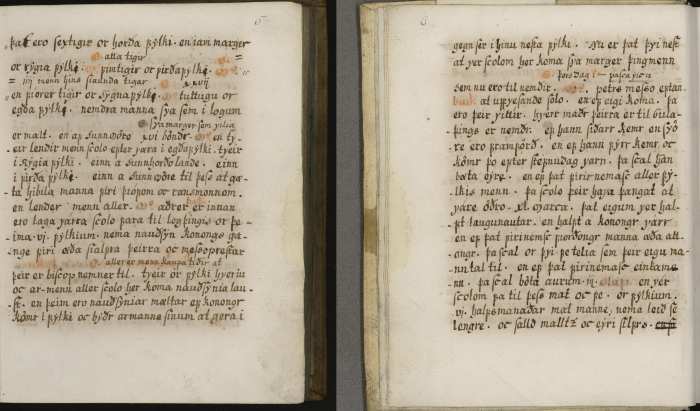 5
þat ero sextigir or horða fylki. en iam marger
atta tigir
or rygia fylke. ok fimtigir or firðafylke. ok
iiij menn hins siaunda tigar xxvij
en fiorer tigir or Sygna fylke ok tuttugu or
egða fylke. nemdra manna sva sem i logum
sva marger sem vilia
er mælt. en af Sunnmøre xvi bøndr. ok en ty-
eir lendir menn scolo efter vara i egðafylki. tveir
i Rygia fylki. einn a sunnhorðolande. einn
i firða fylke. einn a sunnmøre til þess at gæ-
ta hibila manna firi þiofom oc ransmonnom.
en lender menn aller. ok aðrer er innan
ero laga varra scolo fara til logþingis or þe-
ima. vj. fylkium. nema nauðsyn konongs ga-
nge firi æða sialfra þeirra oc messoprestar
aller er menn kaupa tiðir at
þeir er biscop nemner til. tveir or fylki hveriu
oc ar-menn aller scolo her koma nauðsynia lau-
st. en þeim ero nauðsyniar mæltar ef konongr
kømr i fylki oc byðr armanne sinum at gera i
gegn ser i hinu nesta fylki. Nu er þat þvi nest
at ver scolom her koma sva marger þingmenn
þorsdag i pascavicu
sem nu ero til nemdir. petrs messo eftan.
at uppvesande solo. en ef eigi koma. þa
ero þeir vittir. hverr maðr þeirra er til Gula-
þings er nemdr. ef hann siðarr kemr en syø-
re ero framførð. en ef hann fyrr kemr oc
kømr þo efter stefnudag varn. þa scal han
bøta øyre. en ef þat firirnemasc aller fy-
lkis menn. þa scolo þeir hava fangat at
vare øðro. XL. marca. þat eigum ver hal-
ft laugunautar. en halft a konongr varr
en ef þat firinemsc fiorðongr manna æða att-
ongr. þa scal or þvi fe telia sem þeir eigu ma-
nntal til. en ef þat firinemasc eintame-
nn. þa scal bøta aurum. iij. en ver
scolom fa til þess mat oc fe. or fylkium.
vj. halfsmanaðar mat manne, nema leið se
lengre. oc salld malltz oc øyri silfrs.